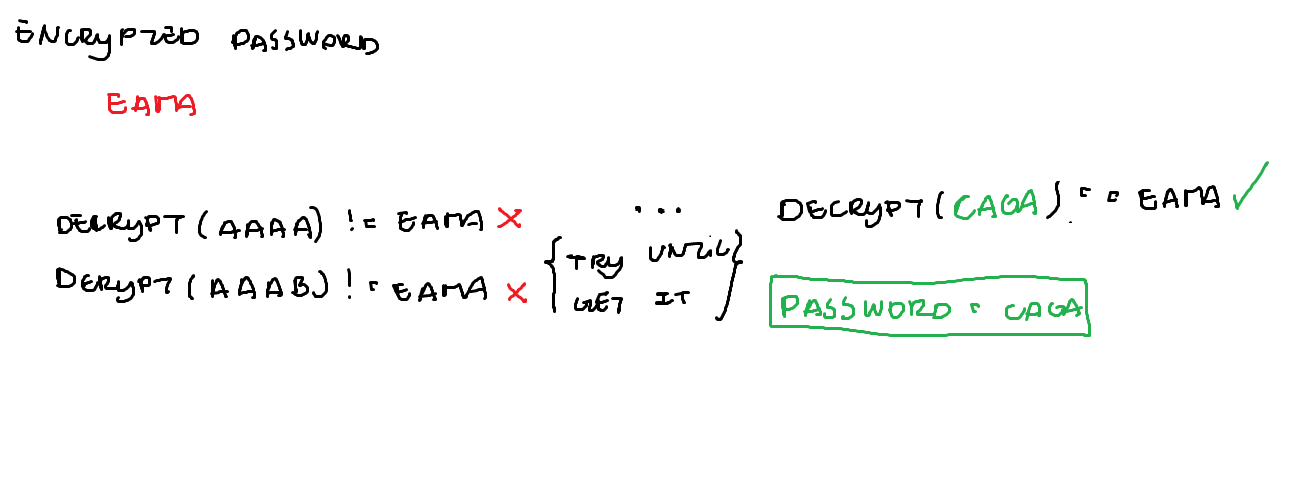 ENCRYPTED PASSWORD
EAMA
DECRYPT (AAAA) != EAMA X
DERYPT (AAAB) != EAMA X
...
{TRY UNTIL
GET IT}
DECRYPT (CAGA) == EAMA ✓
PASSWORD = CAGA